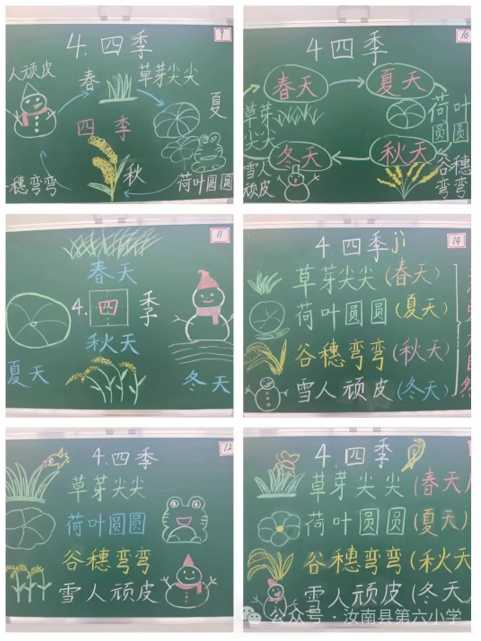 4.四季
9
人顽皮
春
草芽尖尖
夏
四季
穗弯弯
秋
荷叶圆圆
4四季
10
春天
夏天
草芽
尖尖
荷叶
圆圆
冬天
秋天
雪人
顽皮
谷穗
弯弯
11
春天
4.四季
秋天
夏天
冬天
4四季jì
14
草芽尖尖(春天)
荷叶圆圆(夏天)
谷穗弯弯(秋天)
雪人顽皮(冬天)
4.四季
12
草芽尖尖
荷叶圆圆
谷穗弯弯
雪人顽皮
4.四季
草芽尖尖(春天)
荷叶圆圆(夏天)
谷穗弯弯(秋天
雪人顽皮(冬天
公众号·汝南县第六小学